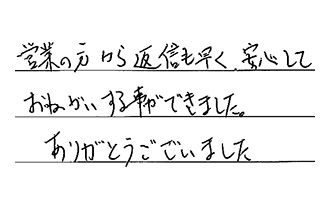 営業の方から返信も早く、安心して
おねがいする事ができました。
ありがとうございました